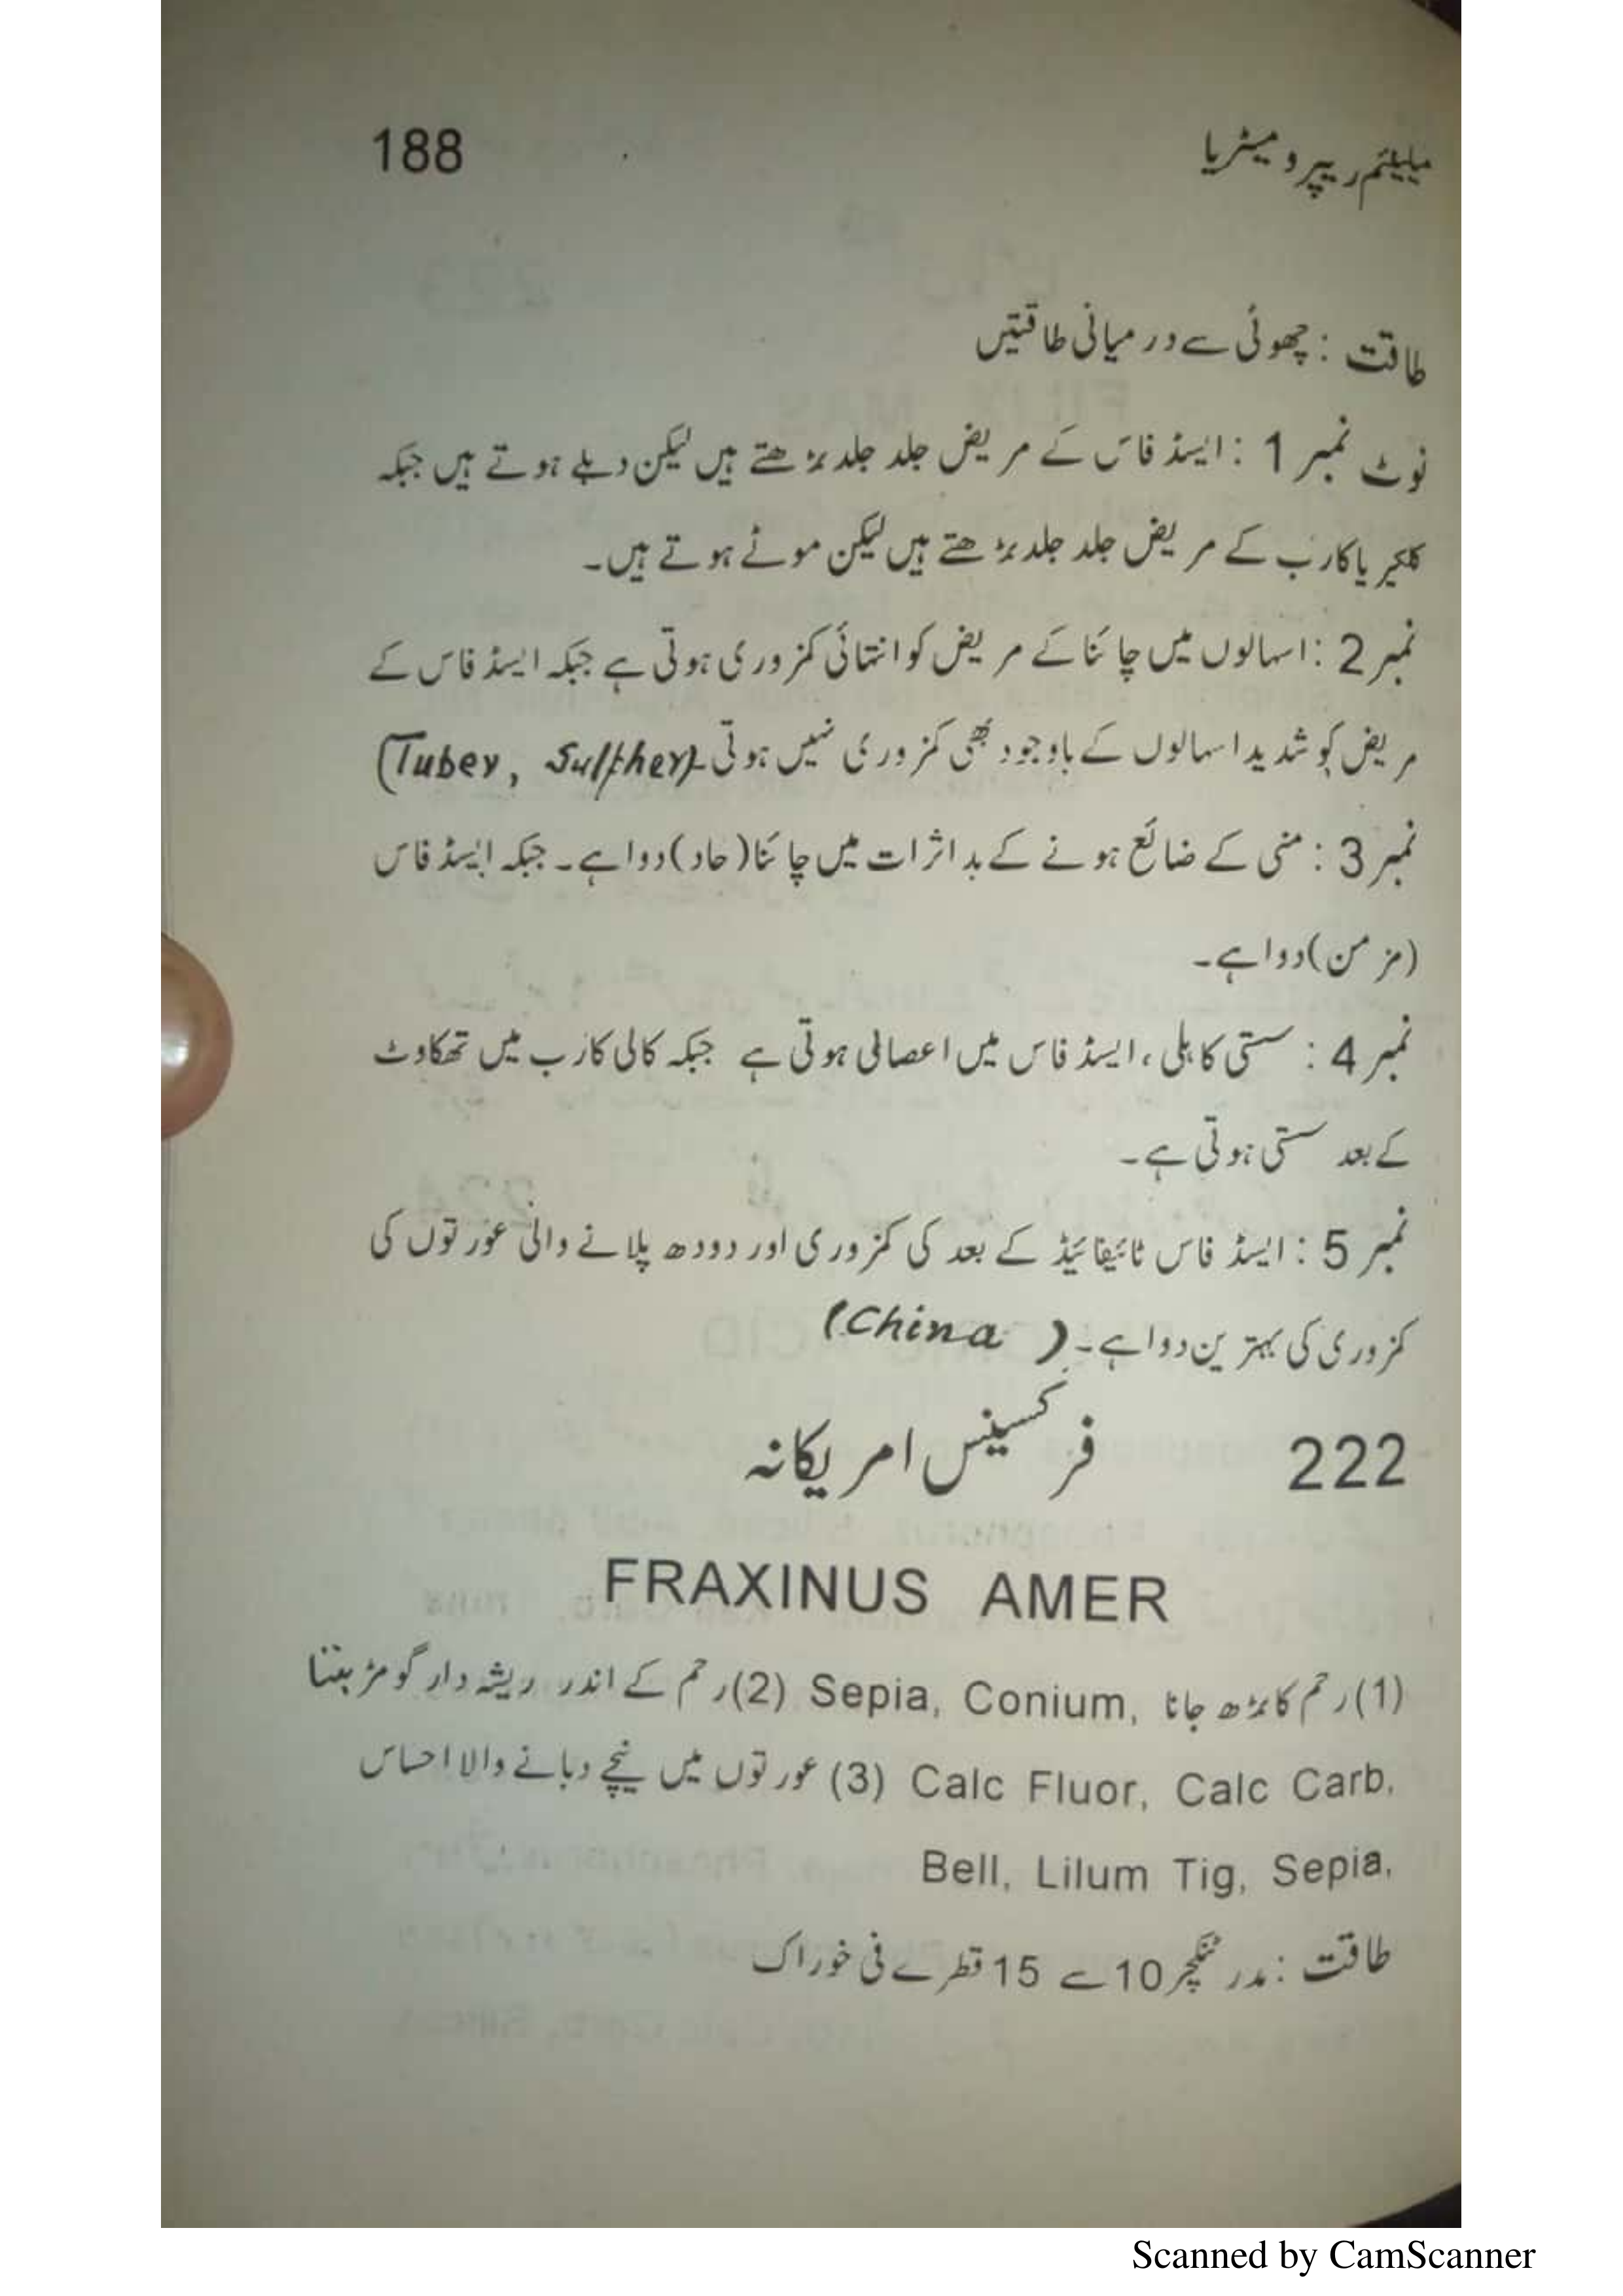 188 میلینیم ریپرومیٹریا
طاقت : چھوٹی سے درمیانی طاقتیں
نوٹ نمبر 1 : ایسڈ فاس کے مریض جلد جلد بڑھتے ہیں لیکن دبلے ہوتے ہیں جبکہ
کلکیریا کارب کے مریض جلد جلد بڑھتے ہیں لیکن موٹے ہوتے ہیں۔
نمبر 2 : اسہالوں میں چائنا کے مریض کو انتہائی کمزوری ہوتی ہے جبکہ ایسڈ فاس کے
مریض کو شدید اسہالوں کے باوجود بھی کمزوری نہیں ہوتی۔ (Tuber, Sulpher)
نمبر 3 : منی کے ضائع ہونے کے بد اثرات میں چائنا (حاد) دوا ہے۔ جبکہ ایسڈ فاس
(مزمن) دوا ہے۔
نمبر 4 : سستی کاہلی، ایسڈ فاس میں اعصابی ہوتی ہے جبکہ کالی کارب میں تھکاوٹ
کے بعد سستی ہوتی ہے۔
نمبر 5 : ایسڈ فاس ٹائیفائیڈ کے بعد کی کمزوری اور دودھ پلانے والی عورتوں کی
کمزوری کی بہترین دوا ہے۔ (China)
222 فرکسینس امریکانہ
FRAXINUS AMER
(1) رحم کا بڑھ جانا Sepia, Conium, (2) رحم کے اندر ریشہ دار گومڑ بننا
Calc Fluor, Calc Carb, (3) عورتوں میں نیچے دبانے والا احساس
Bell, Lilum Tig, Sepia,
طاقت : مدر ٹنکچر 10 سے 15 قطرے فی خوراک
Scanned by CamScanner